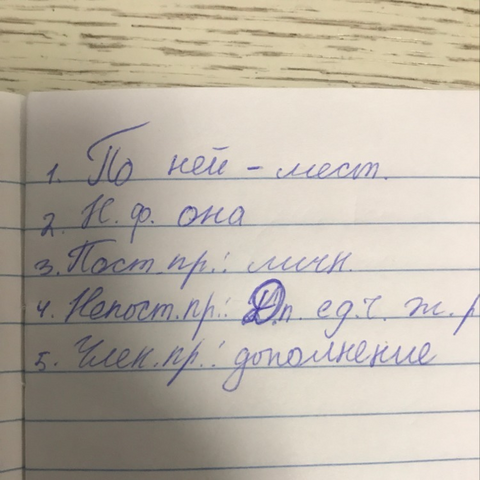 1. По ней - мест.
2. Н.ф. она
3. Пост.пр.: личн.
4. Непост.пр.: Д.п. ед.ч. ж.р
5. Член.пр.: дополнение